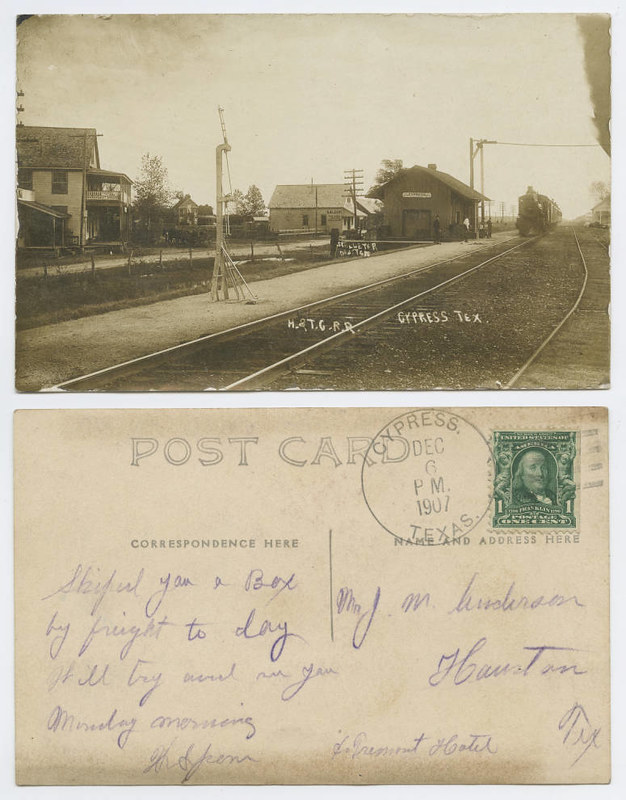 H. & T. C. R.R.
CYPRESS TEX.
POST CARD
CYPRESS.
DEC
6
P M.
1907
TEXAS.
UNITED STATES OF
AMERICA
1 FRANKLIN 1
POSTAGE
ONE CENT
CORRESPONDENCE HERE
NAME AND ADDRESS HERE
Shiped you a Box
by freight to day
Will try and see you
Monday morning
Mr J. M. Anderson
Houston
Tex
Tremont Hotel